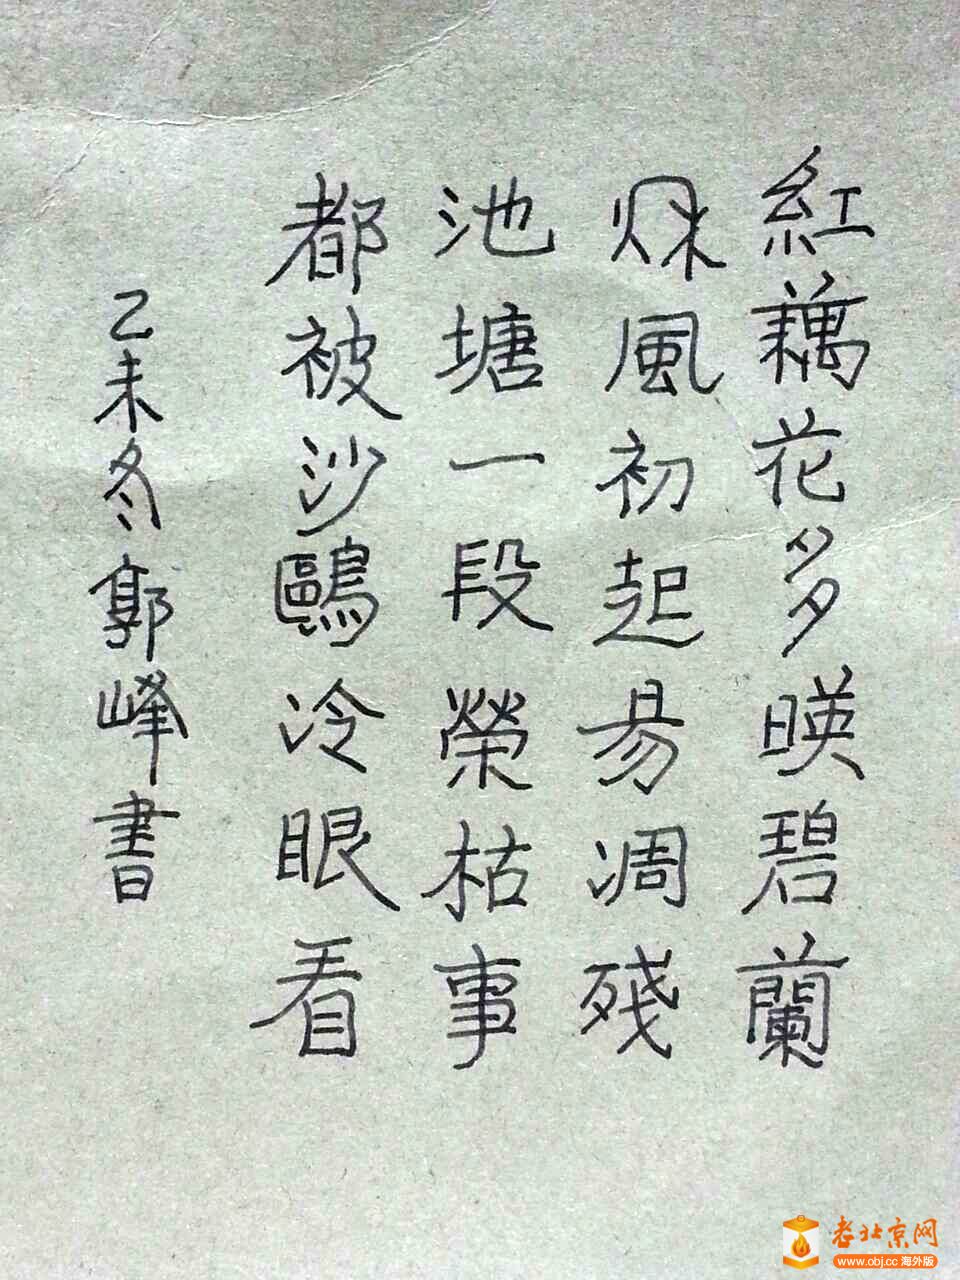 紅藕花多暎碧蘭
秌風初起易凋殘
池塘一段榮枯事
都被沙鷗冷眼看
乙未冬郭峰書
老北京网
www.obj.cc 海外版